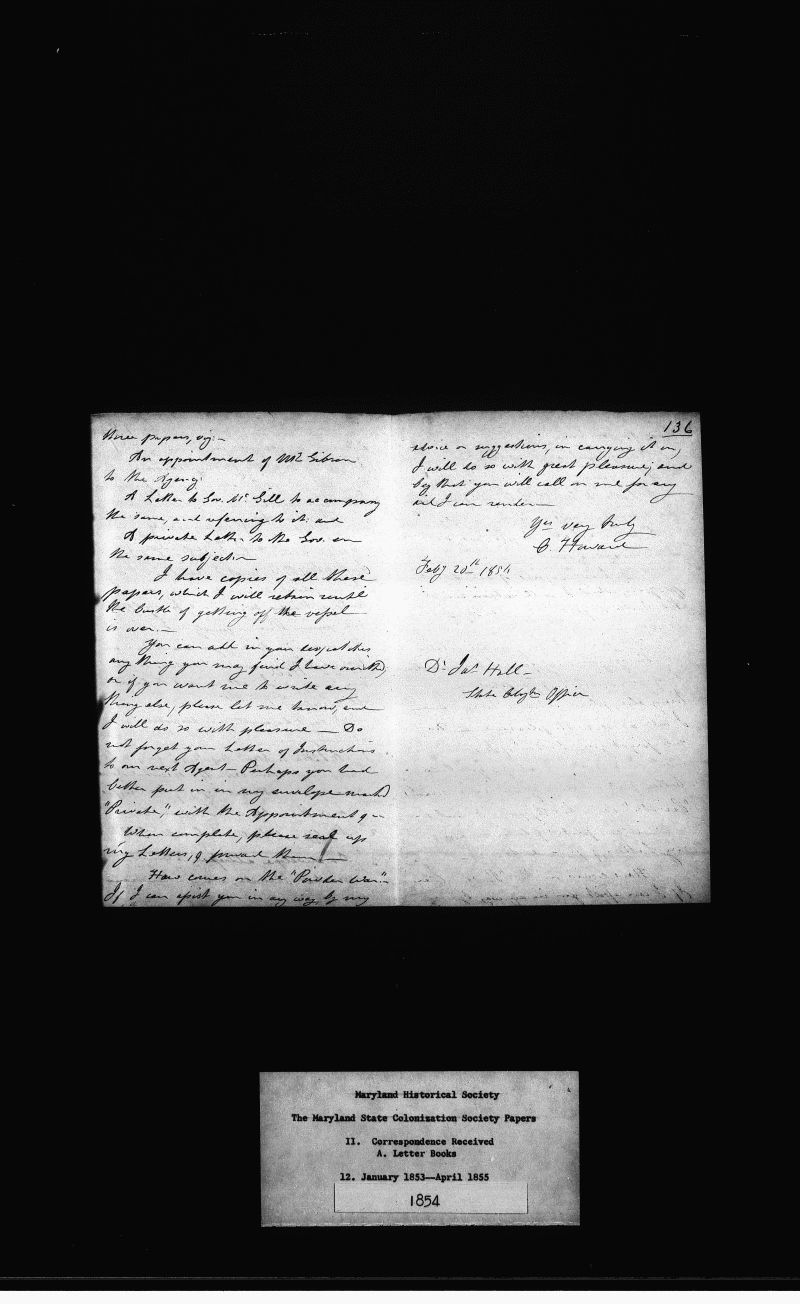 three papers, viz:—
An appointment of Mr Gibson
to the Agency:
A Letter to Gov. Mc Gill to accompany
the same, and referring to it: and
A private Letter to the Gov. on
the same subject.—
I have copies of all these
papers, which I will retain until
the bustle of getting off the vessel
is over.—
You can add in your despatches
any thing you may find I have omitted,
or if you want me to write any
thing else, please let me know, and
I will do so with pleasure — Do
not forget your Letter of Instructions
to our next Agent — Perhaps you had
better put it in my envelope marked
"Private," with the Appointment &—
When complete, please seal up
my Letters, & forward them —
How comes on the "Powder War"—
If I can assist you in any way, by my
136
advice or suggestions, in carrying it on,
I will do so with great pleasure; and
beg that you will call on me for any
aid I can render—
Yrs very truly
C. Howard
Feby 20th 1854
Dr Jas Hall—
State Office
Maryland Historical Society
The Maryland State Colonization Society Papers
II. Correspondence Received
A. Letter Books
12. January 1853—April 1855
1854